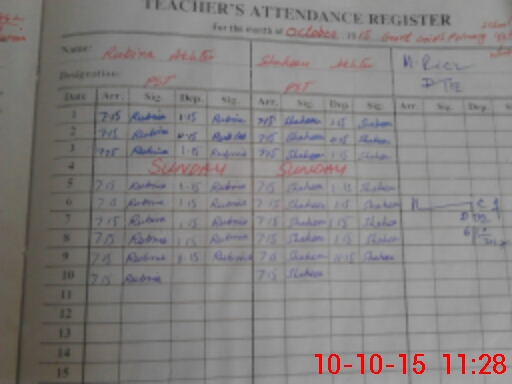 TEACHER'S ATTENDANCE REGISTER
For the month of October
Name: Rubina Akhter Shaheen Akhter
Designation: PST PST
Date Arr. Sig. Dep. Sig. Arr. Sig. Dep. Sig. Arr. Sig. Dep.
1 7-15 Rubina 1-15 Rubina 7-15 Shaheen 1-15 Shaheen
2 7-15 Rubina Rubina 7-15 Shaheen Shaheen
3 7-15 Rubina 1-15 Rubina 7-15 Shaheen 1-15 Shaheen
4 SUNDAY SUNDAY
5 7-15 Rubina 1-15 Rubina 7-15 Shaheen 1-15 Shaheen
6 7-15 Rubina 1-15 Rubina 7-15 Shaheen 1-15 Shaheen
7 7-15 Rubina 1-15 Rubina 7-15 Shaheen 1-15 Shaheen
8 7-15 Rubina 1-15 Rubina 7-15 Shaheen 1-15 Shaheen
9 7-15 Rubina 1-15 Rubina 7-15 Shaheen Shaheen
10 7-15 Rubina 7-15 Shaheen
11
12
13
14
15
10-10-15 11:28